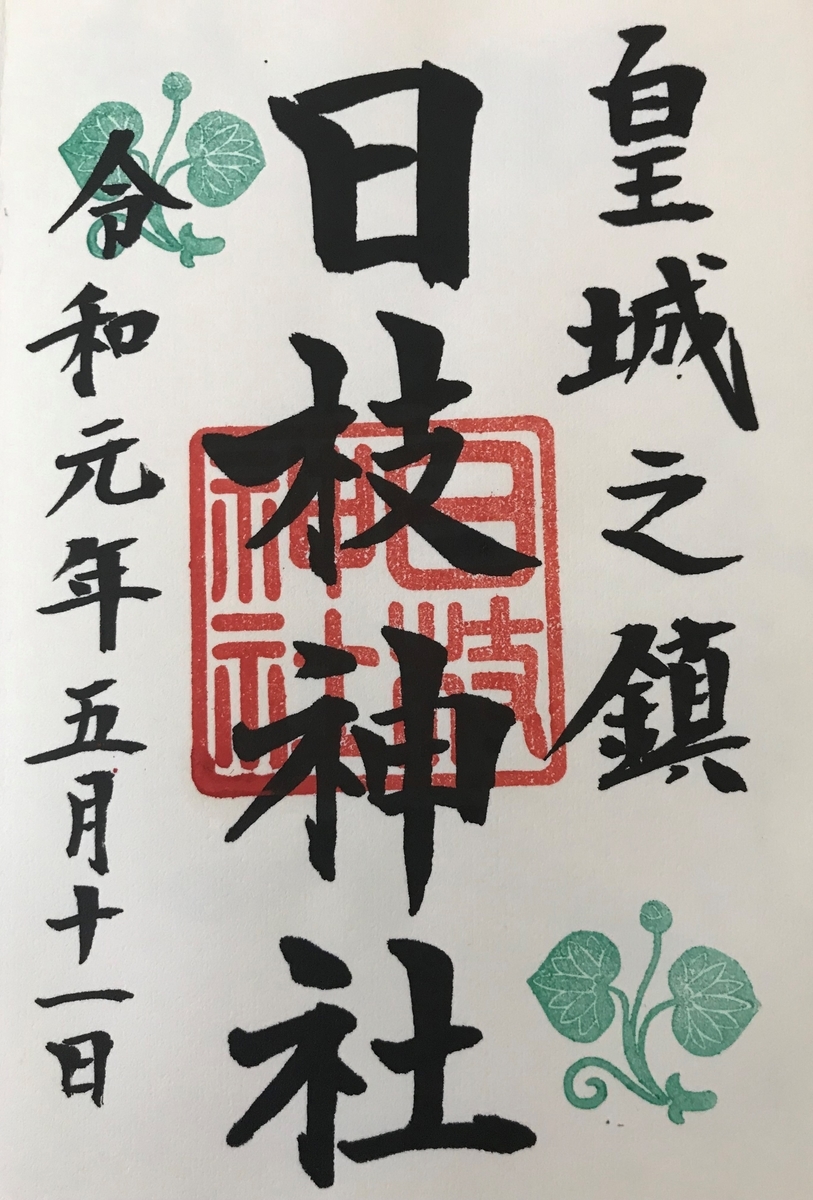 皇城之鎮
日枝神社
日枝神社
令和元年五月十一日